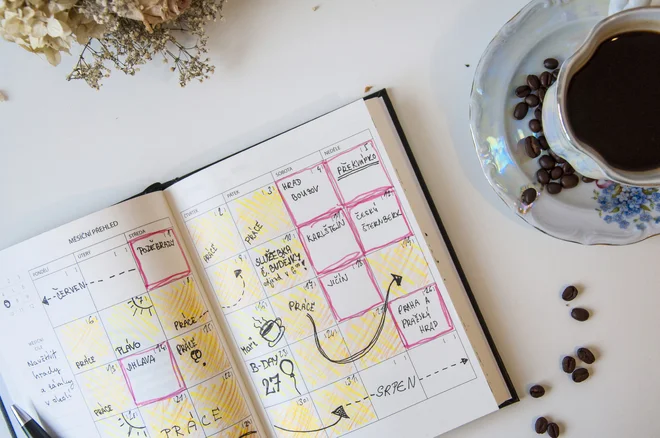 MĚSÍČNÍ PŘEHLED
PONDĚLÍ
ÚTERÝ
STŘEDA
ČTVRTEK
PÁTEK
SOBOTA
NEDĚLE
ČERVEN
PODĚBRADY
PRÁCE
PLAVO
PRÁCE
Navštívit
hrady
a zámky
v okolí
PRÁCE
JIHLAVA
PRÁCE
PRÁCE
PRÁCE
PRÁCE
HRAD
BOUZOV
PŘEKVÁPKO
SLUŽEBKA
Č. BUDĚJKY
KARLŠTEJN
ČESKÝ
ŠTERNBERK
PRÁCE
JIČÍN
B-DAY
27
PRAHA A
PRAŽSKÝ
HRAD
SRPEN